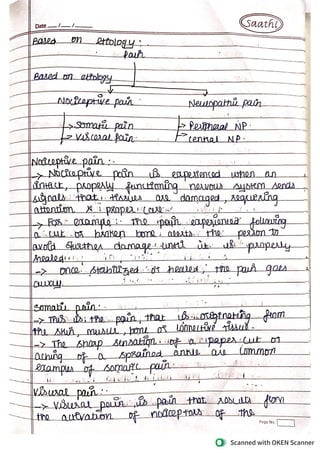 Date __/__/____
Saathi
Based on ettology :
Pain
Based on ettology
Nociceptive pain
Neuropathic pain
-> Somatic pain
-> Visceral pain
-> Peripheral NP.
-> Central NP.
Nociceptive pain :-
-> Nociceptive pain is experienced when an
intact, properly functioning nervous system sends
signals that tissues are damaged, requiring
attention & proper care.
-> For example: The pain experienced following
a cut or broken bone alerts the person to
avoid further damage until it is properly
healed.
-> once stabilized or healed, the pain goes
away.
Somatic pain :-
-> This is the pain, that is originating from
the skin, muscle, bone or connective tissue.
-> The sharp sensation of a paper cut or
aching of a sprained ankle are common
examples of somatic pain.
Visceral pain :-
-> Visceral pain is pain that results from
the activation of nociceptors of the
Page No.
Scanned with OKEN Scanner